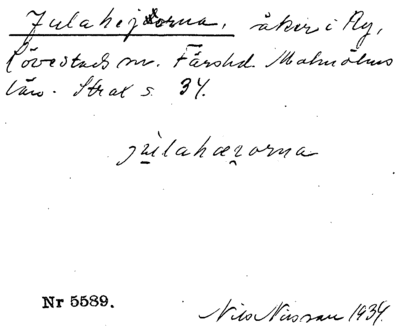 Julahejorna, åker i Ry,
Lövestads sn. Färs hd. Malmöhus
län. Strax s. 34.
julahæjorna
Nr 5589.
Nils Nilsson 1934.